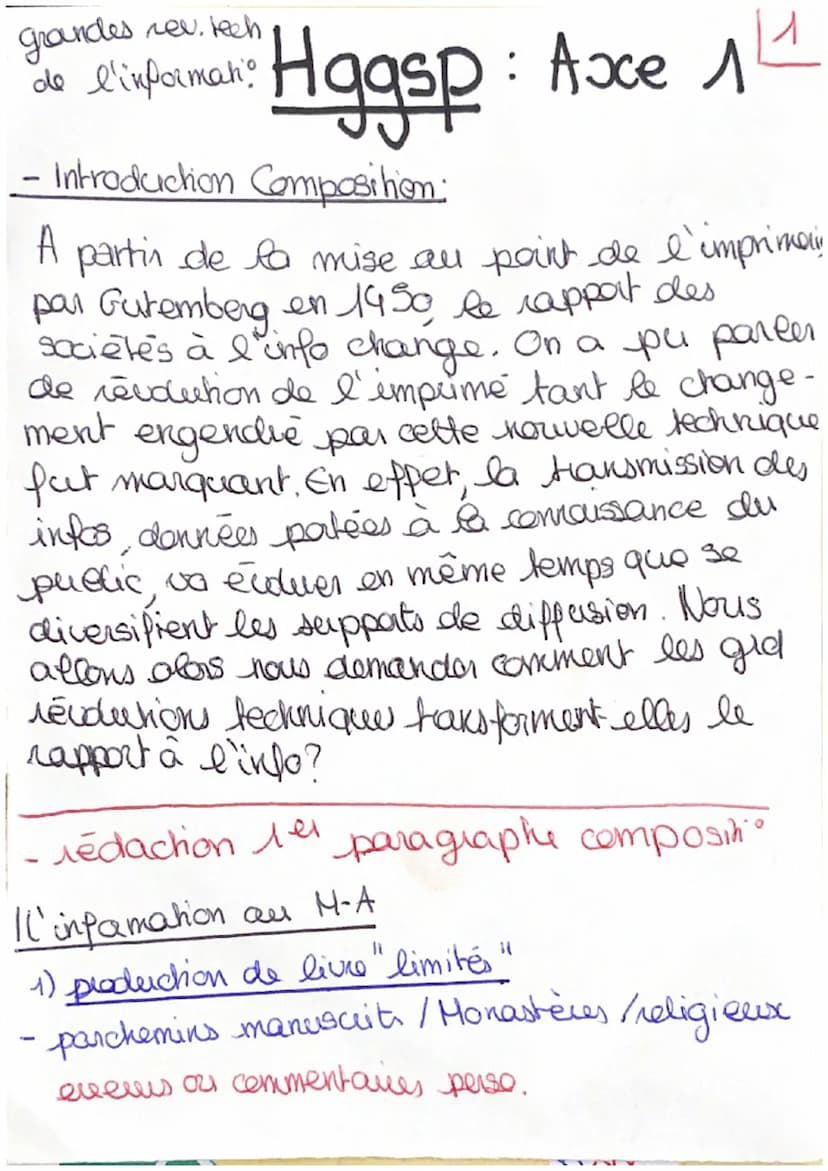 grandes rev. tech
de l'informati°
Hggsp : Axe 1
1
- Introduction Composition:
A partir de la mise au point de l'imprimerie
par Gutemberg en 1450, le rapport des
sociétés à l'info change. On a pu parler
de révolution de l'imprimé tant le change-
ment engendré par cette nouvelle technique
fut marquant. En effet, la transmission des
infos, données portées à la connaissance du
public, va évoluer en même temps que se
diversifient les supports de diffusion. Nous
allons alors nous demander comment les grd
révolutions techniques transforment elles le
rapport à l'info?
- rédaction 1er paragraphe composit°
I L'information au M-A
1) production de livre "limités"
- parchemins manuscrits / Monastères / religieux
erreurs ou commentaires perso.